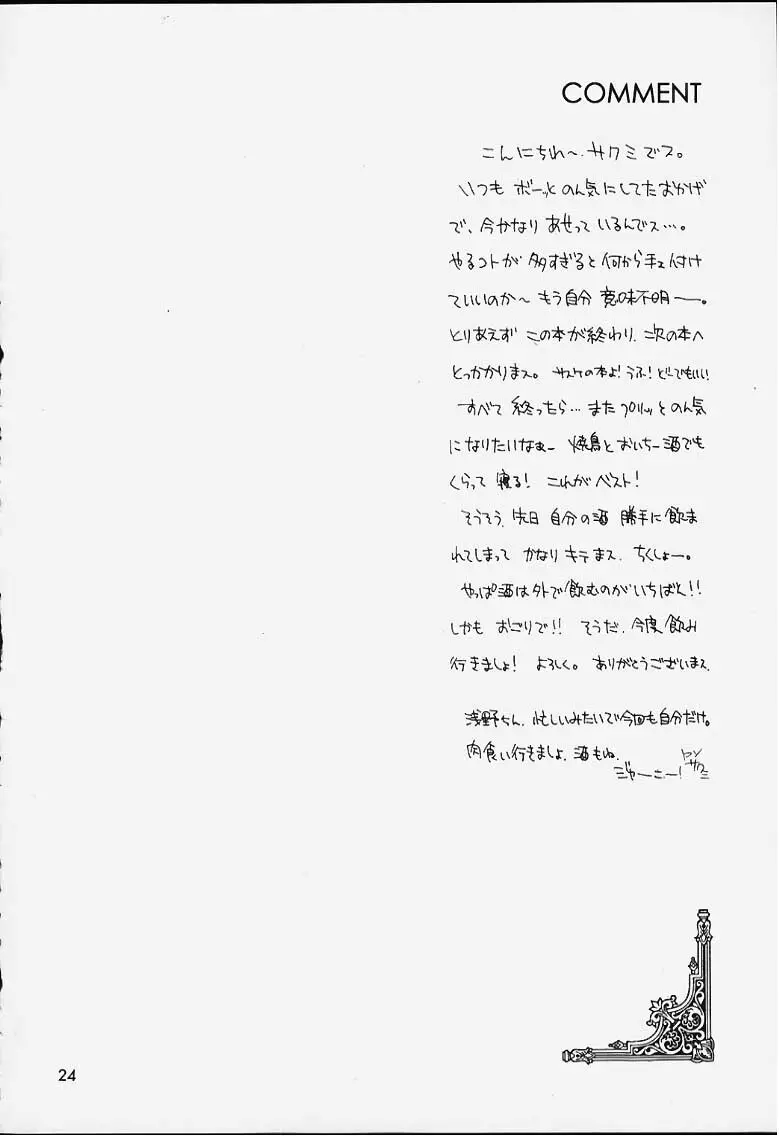 COMMENT
こんにちわ〜。サクミでス。
いつも ボーッと のん気にしてたおかげ
で、今かなり あせって いるんでス…。
やるコトが 多すぎると 何から手え付け
ていいのか〜 もう自分 意味不明ー。
とりあえず この本が終わり、次の本へ
とっかかりまス。 サスケの本よ! うふ! どーでもいい
すべて 終ったら… また プリッと のん気
になりたいなぁー 焼鳥と おいちー酒でも
くらって 寝る! これが ベスト!
そうそう、先日 自分の酒 勝手に飲ま
れてしまって かなり キテまス、ちくしょー。
やっぱ酒は外で飲むのがいちばん!!
しかも おごりで!! そうだ、今度飲み
行きましょ! よろしく。 ありがとうございまス、
浅野ちん、忙しいみたいで今回も自分だけ。
肉食い行きましょ、酒もね、
じゃーにー!
サクミ
24